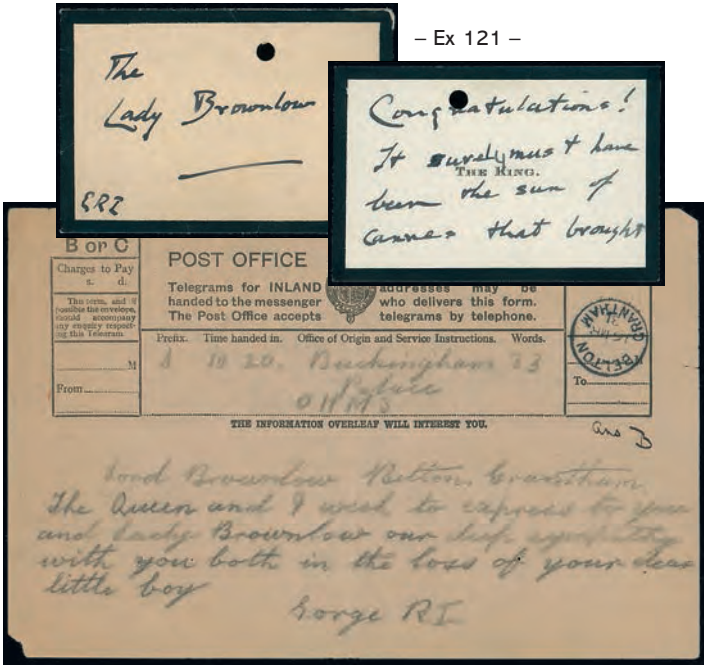 – Ex 121 –
The
Lady Brownlow
ERI
Congratulations!
It surely must have
THE KING.
been the sun of
Cannes that brought
B or C
Charges to Pay
s. d.
This form, and if
possible the envelope,
should accompany
any enquiry respect-
ing this Telegram.
M
From
POST OFFICE
Telegrams for INLAND addresses may be
handed to the messenger who delivers this form.
The Post Office accepts telegrams by telephone.
Prefix. Time handed in. Office of Origin and Service Instructions. Words.
10 20. Buckingham 33
Palace
OHMS
BELTON
GRANTHAM
To
THE INFORMATION OVERLEAF WILL INTEREST YOU.
Lord Brownlow Belton Grantham
The Queen and I wish to express to you
and Lady Brownlow our deep sympathy
with you both in the loss of your dear
little boy
Gorge RI